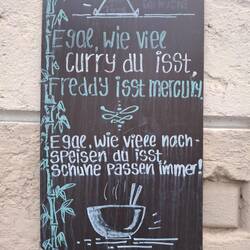 Egal, wie viel
Curry du isst,
Freddy isst mercury!
Egal, wie viele nach-
speisen du isst,
schuhe passen immer!